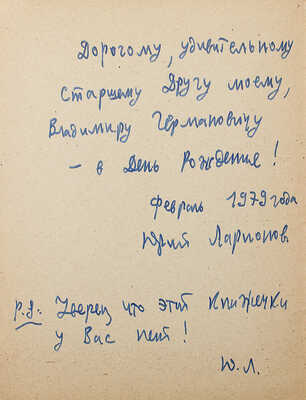 Дорогому, удивительному
старшему Другу моему,
Владимиру Германовичу
– в День Рождение!
Февраль 1979 года
Юрий Ларионов.
P.S: Уверен что этой книжечки
у Вас нет!
Ю.Л.